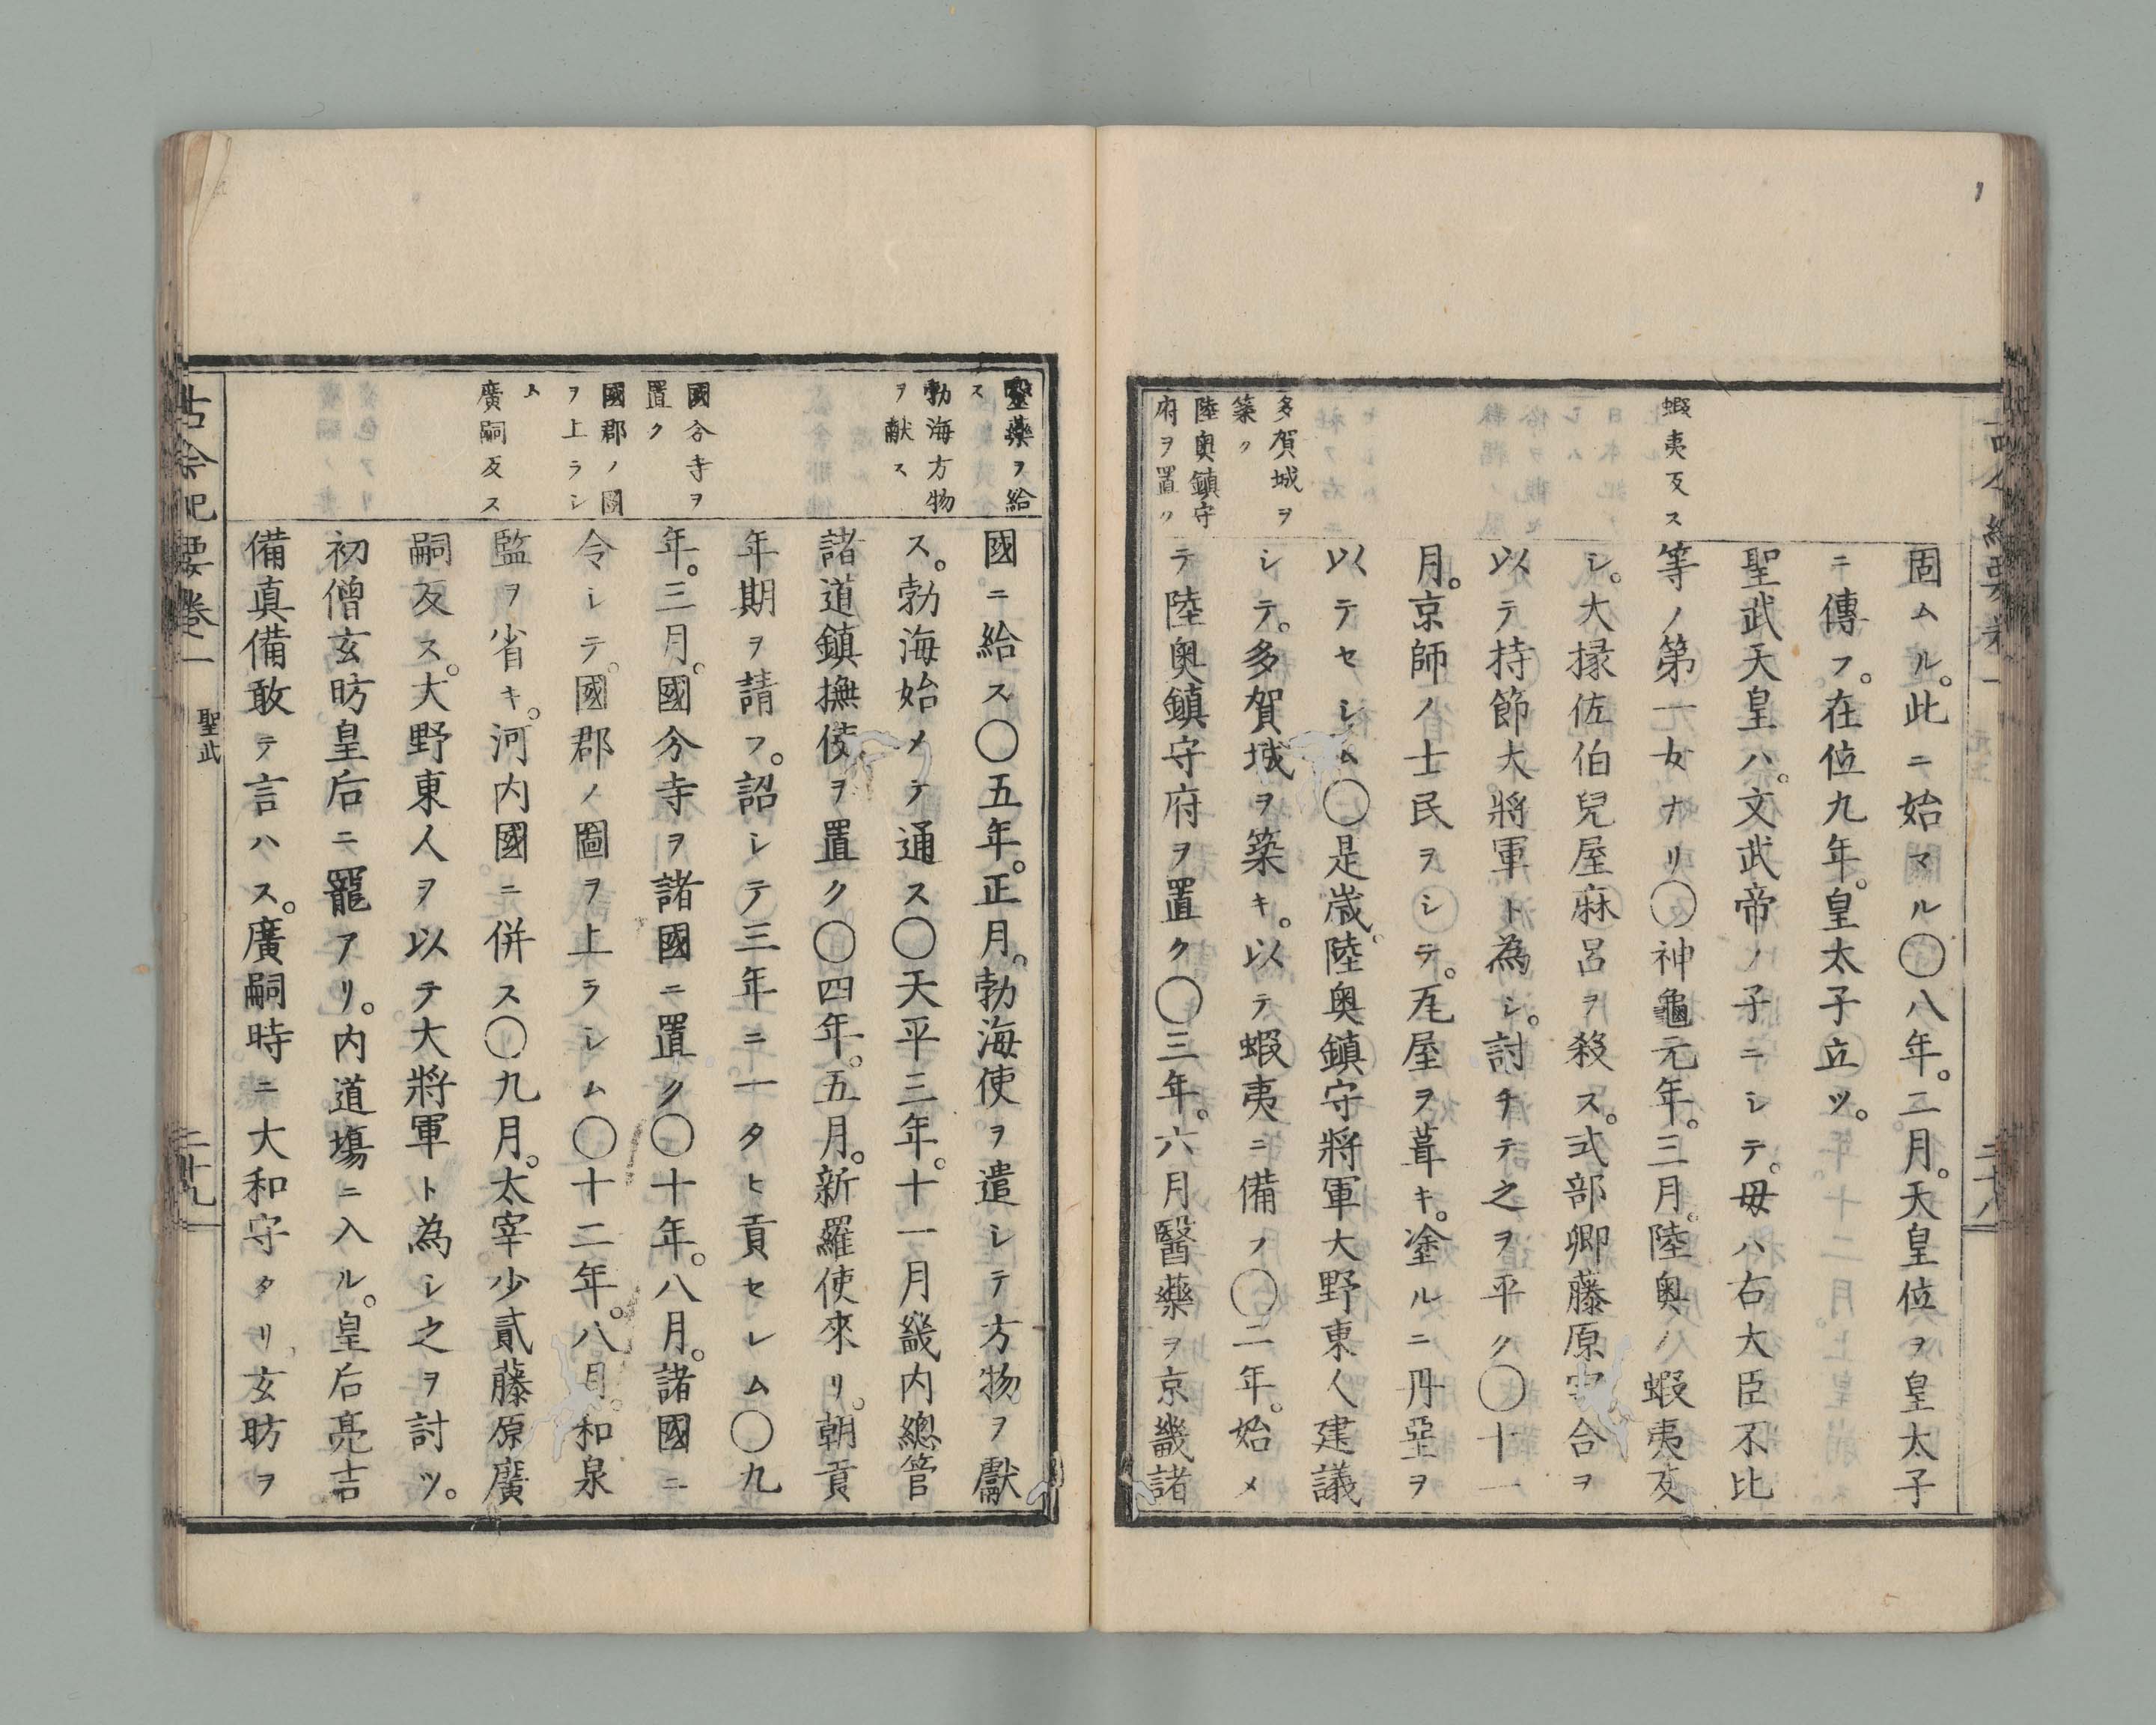 蝦夷反ス
多賀城ヲ
築ク
陸奥鎮守
府ヲ置ク
固ムル。此ニ始マル〇八年。二月。天皇位ヲ皇太子
ニ傳フ。在位九年。皇太子立ツ。
聖武天皇ハ。文武帝ノ子ニシテ。母ハ右大臣不比
等ノ第一女ナリ〇神龜元年。三月。陸奥ノ蝦夷反
シ。大掾佐伯兒屋麻呂ヲ殺ス。式部卿藤原宇合ヲ
以テ持節大將軍ト為シ。討チテ之ヲ平ク〇十一
月。京師ノ士民ヲシテ。瓦屋ヲ葺キ。塗ルニ丹堊ヲ
以テセシム〇是歳。陸奥鎮守將軍大野東人建議
シテ。多賀城ヲ築キ。以テ蝦夷ニ備フ〇二年。始メ
テ陸奥鎮守府ヲ置ク〇三年。六月醫藥ヲ京畿諸
醫藥ヲ給
ス
勃海方物
ヲ献ス
國分寺ヲ
置ク
國郡ノ圖
ヲ上ラシ
ム
廣嗣反ス
國ニ給ス〇五年。正月。勃海使ヲ遣シテ方物ヲ獻
ス。勃海始メテ通ス〇天平三年。十一月畿内總管
諸道鎮撫使ヲ置ク〇四年。五月。新羅使來リ。朝貢
年期ヲ請フ。詔シテ三年ニ一タヒ貢セレム〇九
年。三月。國分寺ヲ諸國ニ置ク〇十年。八月。諸國ニ
令シテ。國郡ノ圖ヲ上ラシム〇十二年。八月。和泉
監ヲ省キ。河内國ニ併ス〇九月。太宰少貳藤原廣
嗣反ス。大野東人ヲ以テ大將軍ト為シ之ヲ討ツ。
初僧玄昉皇后ニ寵アリ。内道塲ニ入ル。皇后亮吉
備真備敢テ言ハス。廣嗣時ニ大和守タリ玄昉ヲ
古今紀要巻一 聖武 二十九